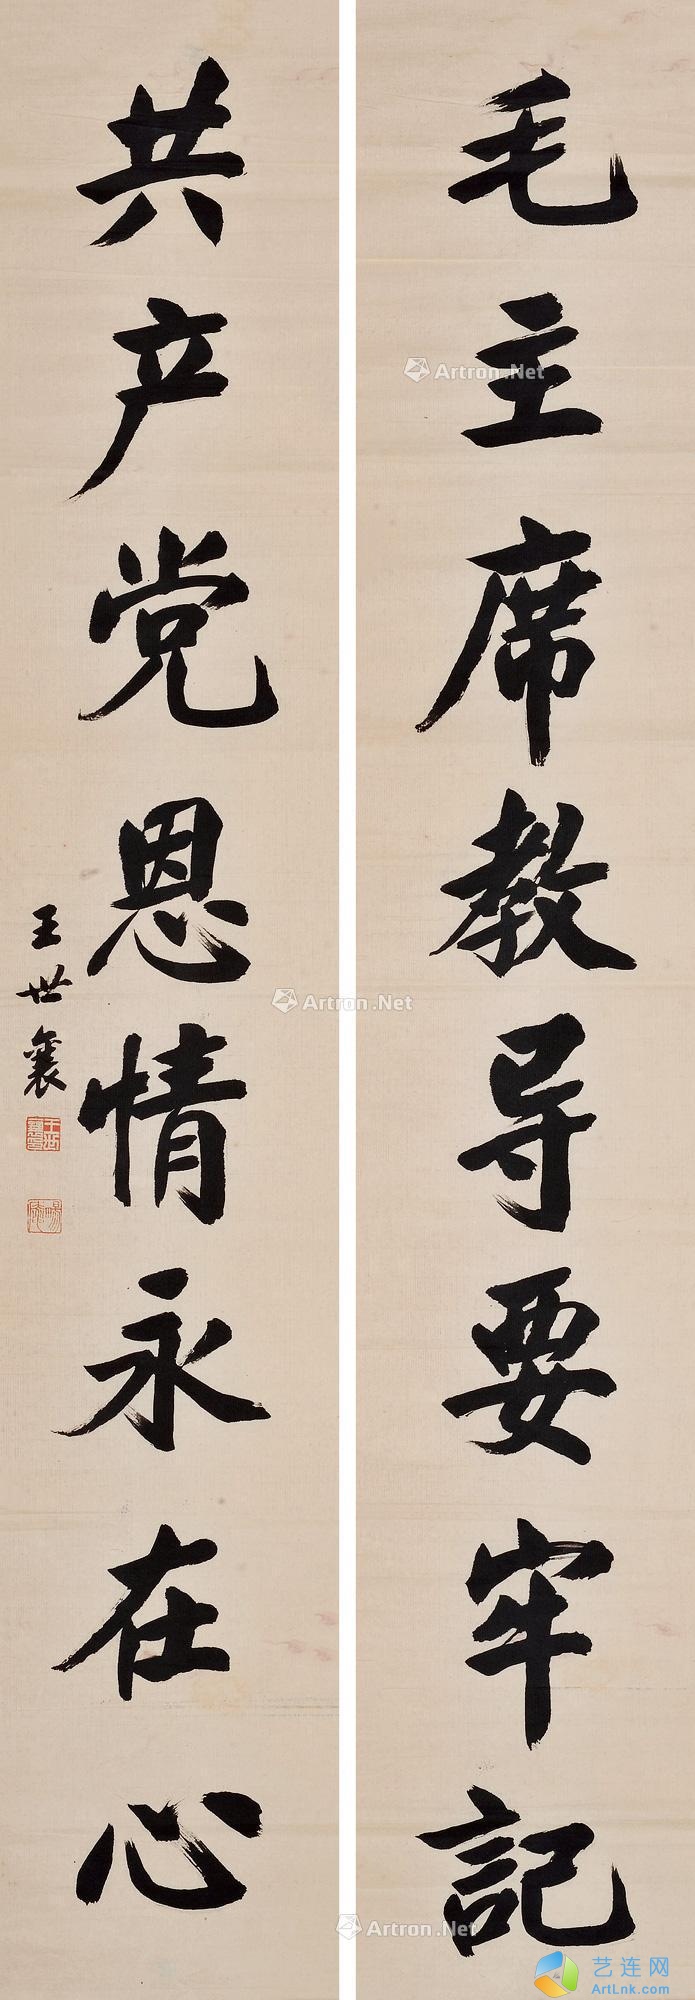 毛主席教导要牢記
共产党恩情永在心
王世襄
王世襄鉥
暢安
Artron.Net
Artron.Net
Artron.Net
艺连网
ArtLnk.com